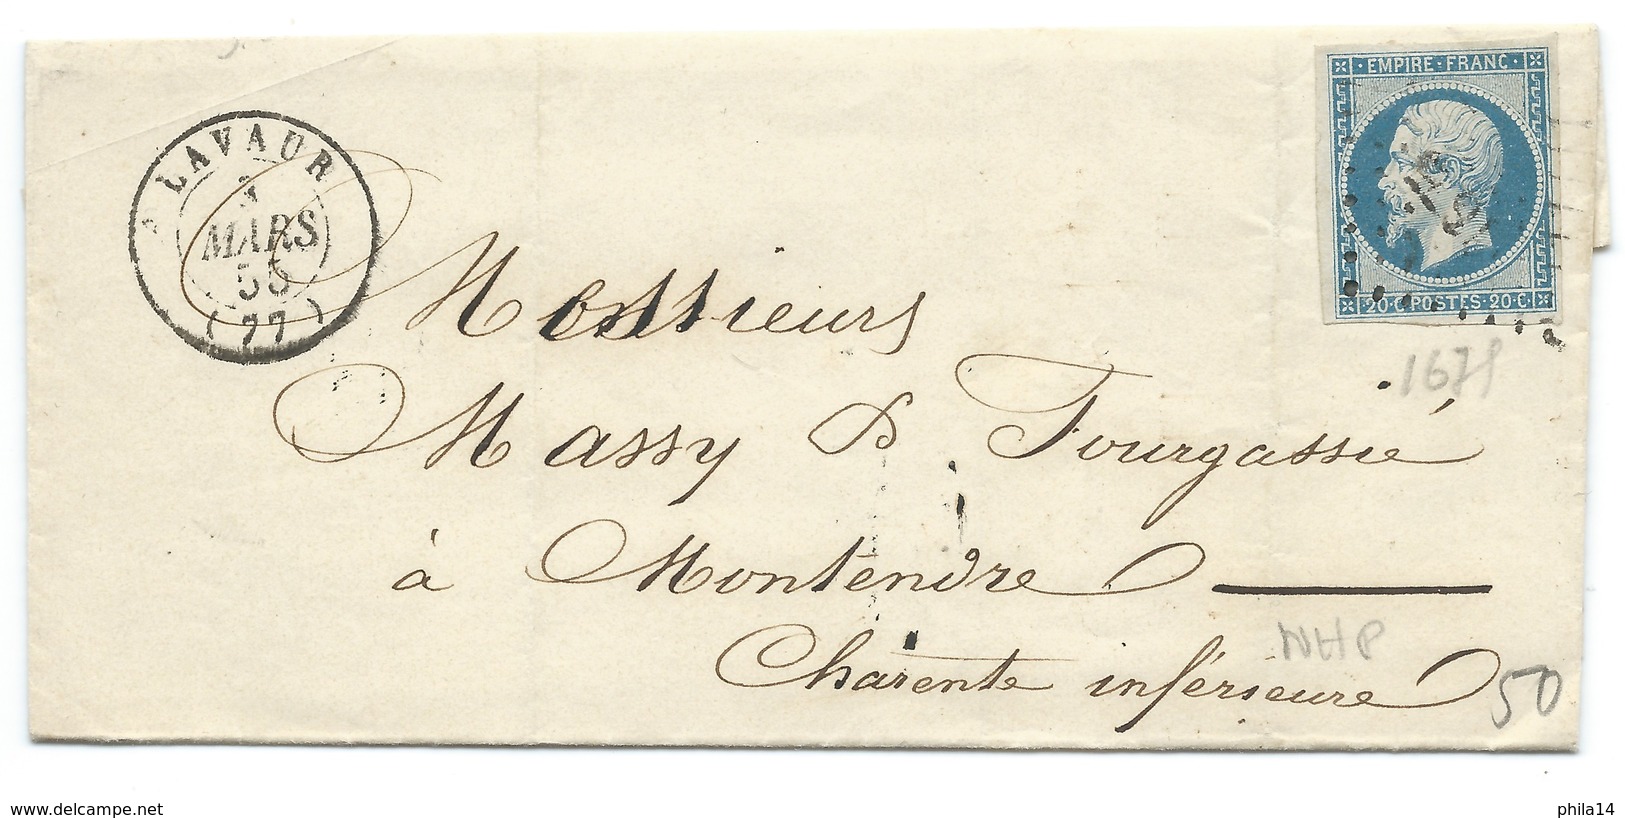 LAVAUR
MARS
55
(77)
EMPIRE · FRANC ·
20·C·POSTES·20·C·
1678
Messieurs
Massy & Fourgassié
à Montendre
Charente inférieure
NHP
50
www.delcampe.net
phila14